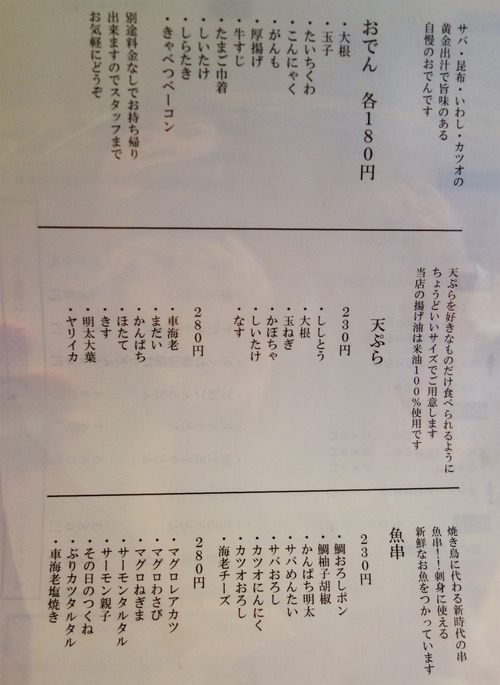 サバ・昆布・いわし・カツオの
黄金出汁で旨味のある
自慢のおでんです
おでん 各180円
・大根
・玉子
・たいちくわ
・こんにゃく
・がんも
・厚揚げ
・牛すじ
・たまご巾着
・しいたけ
・しらたき
・きゃべつベーコン
別途料金なしでお持ち帰り
出来ますのでスタッフまで
お気軽にどうぞ
天ぷらを好きなものだけ食べられるように
ちょうどいいサイズでご用意します
当店の揚げ油は米油100%使用です
天ぷら
230円
・ししとう
・大根
・玉ねぎ
・かぼちゃ
・しいたけ
・なす
280円
・車海老
・まだい
・かんぱち
・ほたて
・きす
・明太大葉
・ヤリイカ
焼き鳥に代わる新時代の串
魚串!!刺身に使える
新鮮なお魚をつかっています
魚串
230円
・鯛おろしポン
・鯛柚子胡椒
・かんぱち明太
・サバめんたい
・サバおろし
・カツオにんにく
・カツオおろし
・海老チーズ
280円
・マグロレアカツ
・マグロわさび
・マグロねぎま
・サーモンタルタル
・サーモン親子
・その日のつくね
・ぶりカツタルタル
・車海老塩焼き